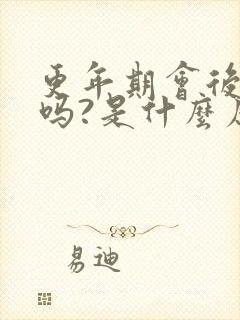 更年期會後
吗?是什麼
易迪